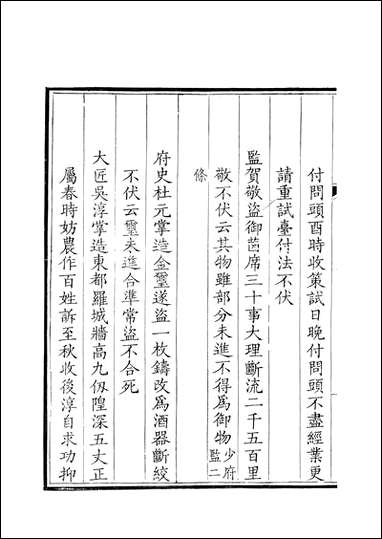 付問頭酉時收策試日晚付問頭不盡經業更
請重試臺付法不伏
監賀敬盜御茵席三十事大理斷流二千五百里
敬不伏云其物雖部分未進不得爲御物少府監二
條
府史杜元掌造金璽遂盜一枚鑄改爲酒器斷絞
不伏云璽未進合準常盜不合死
大匠吳淳掌造東都羅城牆高九仭隍深五丈正
屬春時妨農作百姓訴至秋收後淳自求功抑